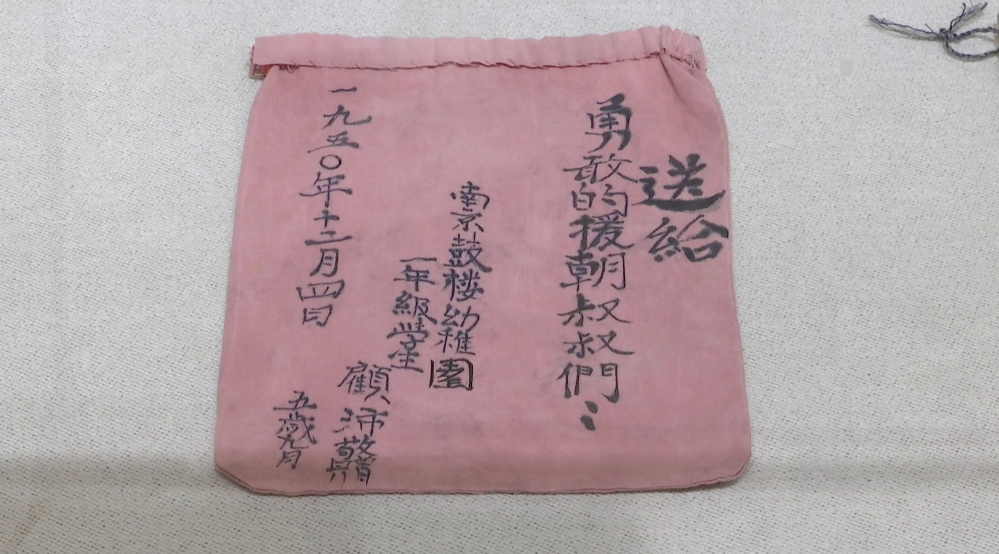 送給
勇敢的援朝叔叔們：
南京鼓楼幼稚園
一年級學生
顧沛敬贈
五歲九月
一九五〇年十二月四日